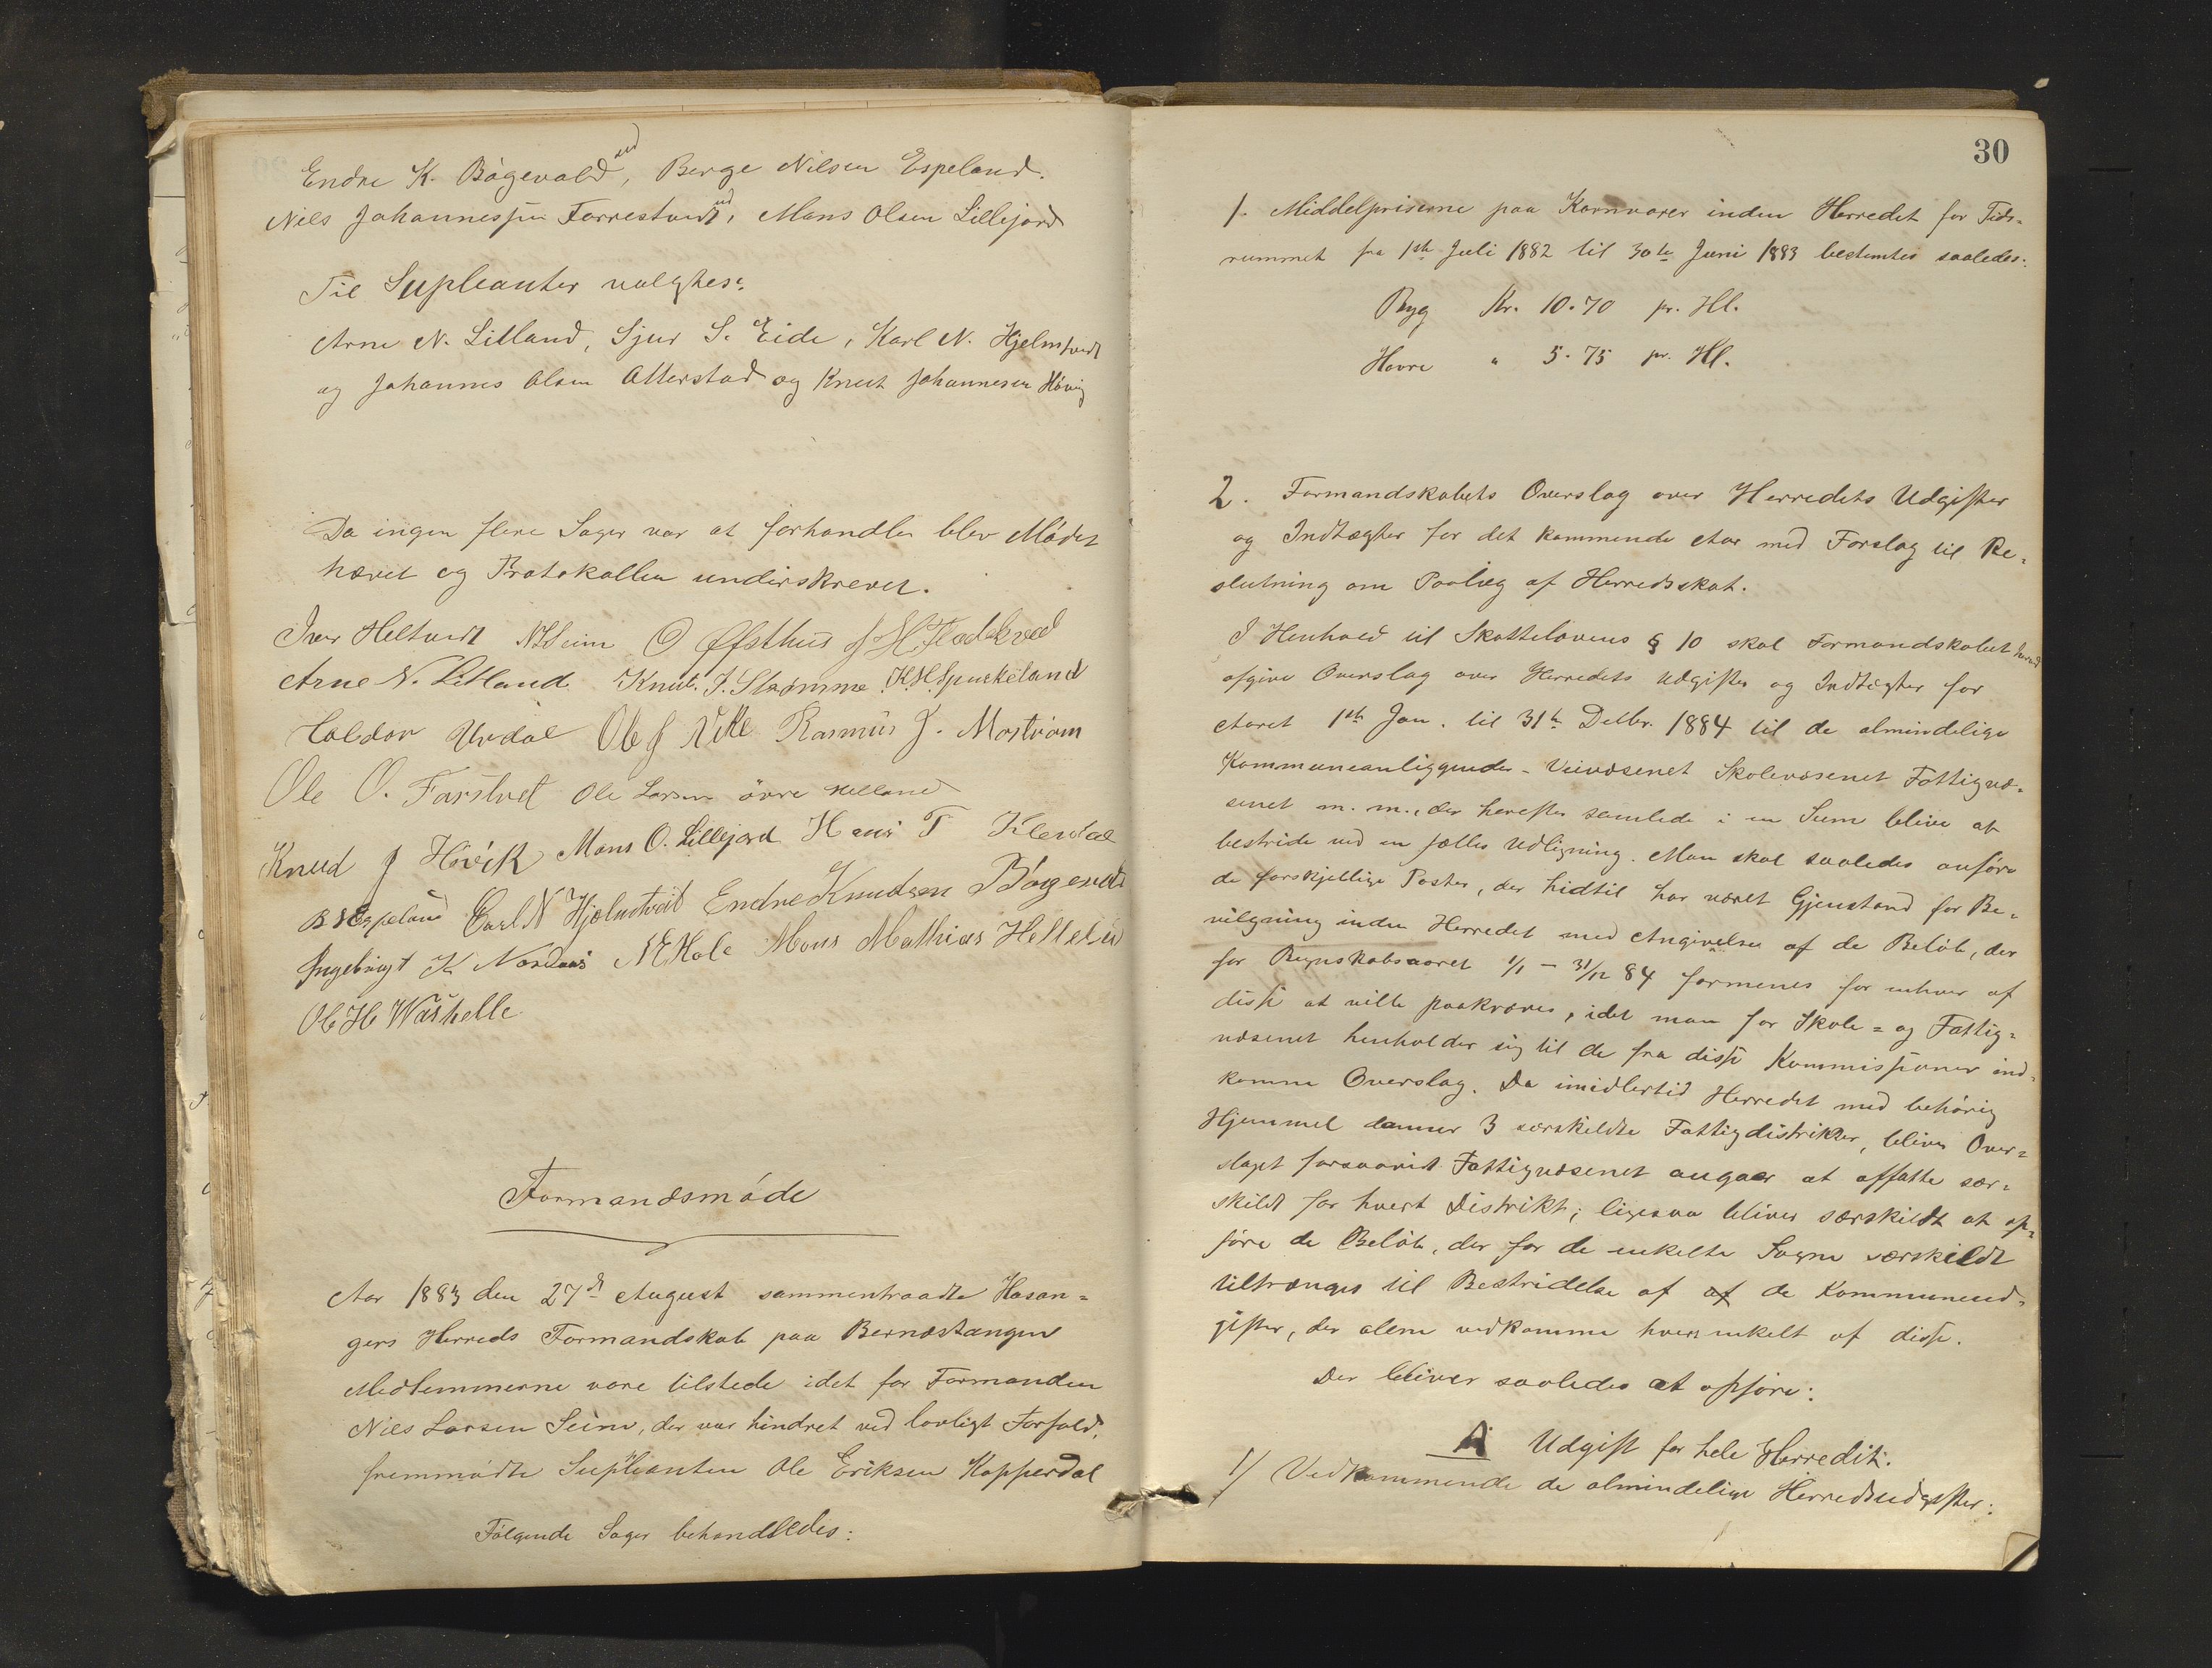 Endre K. Bögevald, Berge Nilsen Espeland.
Nils Johannessen Farrestvedt, Mons Olsen Lillejord
Til Supleanter valgtes:
Arne N. Litland, Sjur S. Eide, Karl N. Hjelmtvedt
og Johannes Olsen Atterstad og Knut Johannesen Hövig
Da ingen flere Sager var at forhandles blev Mödet
hævet og Protokollen underskrevet.
Iver Heltvedt NLSeim O Øfsthus
Arne N. Litland Knut. J. Strømme K.H.Spurkeland
Haldor Urdal Ole J Rasmus J.
Ole O. Farstvet Ole Larsen övre Helland
Knud J Hövik Mons O. Lillejord Hans T Klevdal
B N Espeland Carl N Hjelmtveit Endre Knudsen
Ingebrigt K Nordaas Mons Mathias
Ole H Washelle
Formandsmöde
Aar 1883 den 27de August sammentraadte Hosan-
gers Herreds Formandskab paa Bernestangen
Medlemmerne vare tilstede idet for Formanden
Nils Larsen Seim, der var hindret ved lovligt Forfald,
fremmödte Supleanten Ole Eriksen Kopperdal
Fölgende Sager behandledes:
30
1. Middelpriserne paa Kornvarer inden Herredet for Tids-
rummet fra 1ste Juli 1882 til 30te Juni 1883 bestemtes saaledes:
Byg Kr. 10.70 pr. Hl.
Havre " 5.75 pr. Hl.
2. Formandskabets Overslag over Herredets Udgifter
og Indtægter for det kommende Aar med Forslag til Be-
slutning om Paalæg af Herredsskat.
I Henhold til Skattelovens § 10 skal Formandskabet herved
afgive Overslag over Herredets Udgifter og Indtægter for
Aaret 1ste Jan. til 31te Decbr. 1884 til de almindelige
Kommuneanliggender - Veivæsenet Skolevæsenet Fattigvæ-
senet m. m., der herefter samlede i en Sum blive at
bestride ved en fælles Udligning. Man skal saaledes anföre
de forskjellige Poster, der hidtil har været Gjenstand for Be-
vilgning inden Herredet med Angivelse af de Belöb, der
for Regnskabsaaret 1/1 - 31/12 84 formenes for enhver af
disse at ville paakræves, idet man for Skole- og Fattig-
væsenet henholder sig til de fra disse Kommissioner ind-
komne Overslag. Da imidlertid Herredet med behörig
Hjemmel danner 3 særskildte Fattigdistrikter, bliver Over-
slaget forsaavidt Fattigvæsenet angaar at affatte sær-
skildt for hvert Distrikt; ligesaa bliver særskildt at op-
före de Belöb, der for de enkelte Sogne særskildt
tiltrænges til Bestridelse af af de Kommuneud-
gifter, der alene vedkomme hvert enkelt af disse.
Der bliver saaledes at opföre:
A Udgift for hele Herredet:
1/ Vedkommende de almindelige Herredsudgifter: